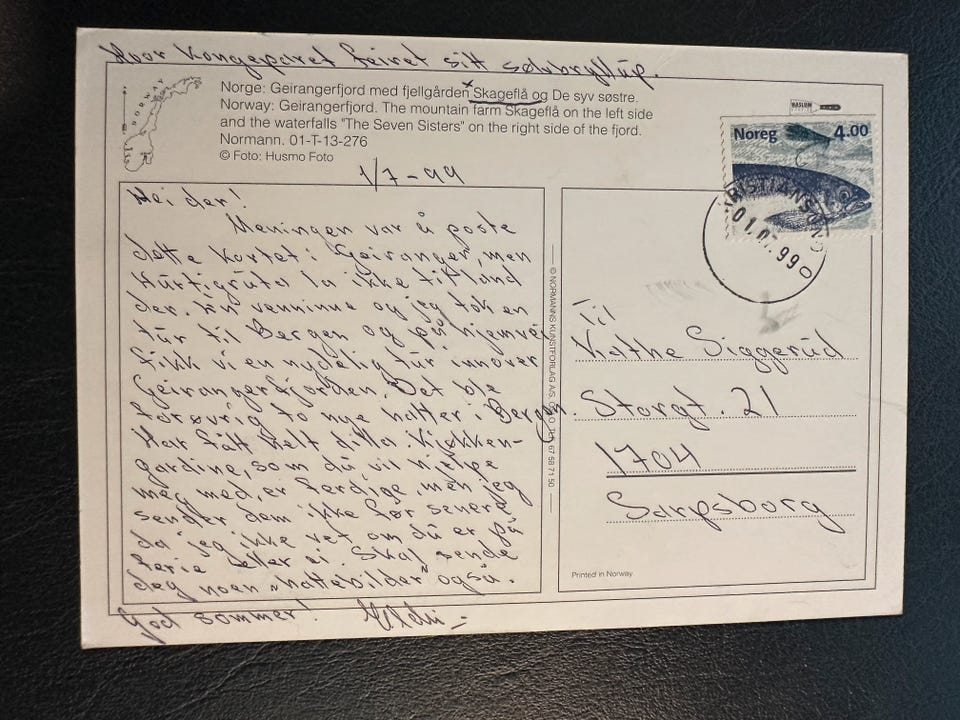 Hvor Kongeparet feiret sitt sølvbryllup.
NORWAY
Norge: Geirangerfjord med fjellgården Skageflå og De syv søstre.
Norway: Geirangerfjord. The mountain farm Skageflå on the left side
and the waterfalls "The Seven Sisters" on the right side of the fjord.
Normann. 01-T-13-276
© Foto: Husmo Foto
1/7-99
Hei der!
Meningen var å poste
dette kortet i Geiranger, men
Hurtigruta la ikke til land
der. En venninne og jeg tok en
tur til Bergen og på hjemvei
fikk vi en nydelig tur innover
Geirangerfjorden. Det ble
forøvrig to nye hatter i Bergen.
Har fått helt dilla. Kjøkken-
gardine, som du vil hjelpe
meg med, er ferdige, men jeg
sender dem ikke før senere
da jeg ikke vet om du er på
ferie eller ei. Skal sende
deg noen "hattebilder" også.
God sommer!
© NORMANNS KUNSTFORLAG A/S, OSLO. TLF. 67 58 71 50
HASLUM
Noreg 4.00
KRISTIANSUND
01.07.99
Til
Kathe Siggerud
Storgt. 21
1704
Sarpsborg
Printed in Norway